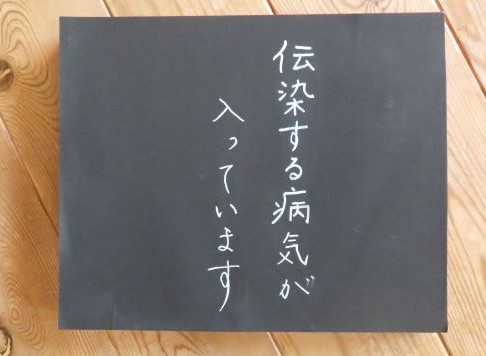 伝染する病気が
入っています